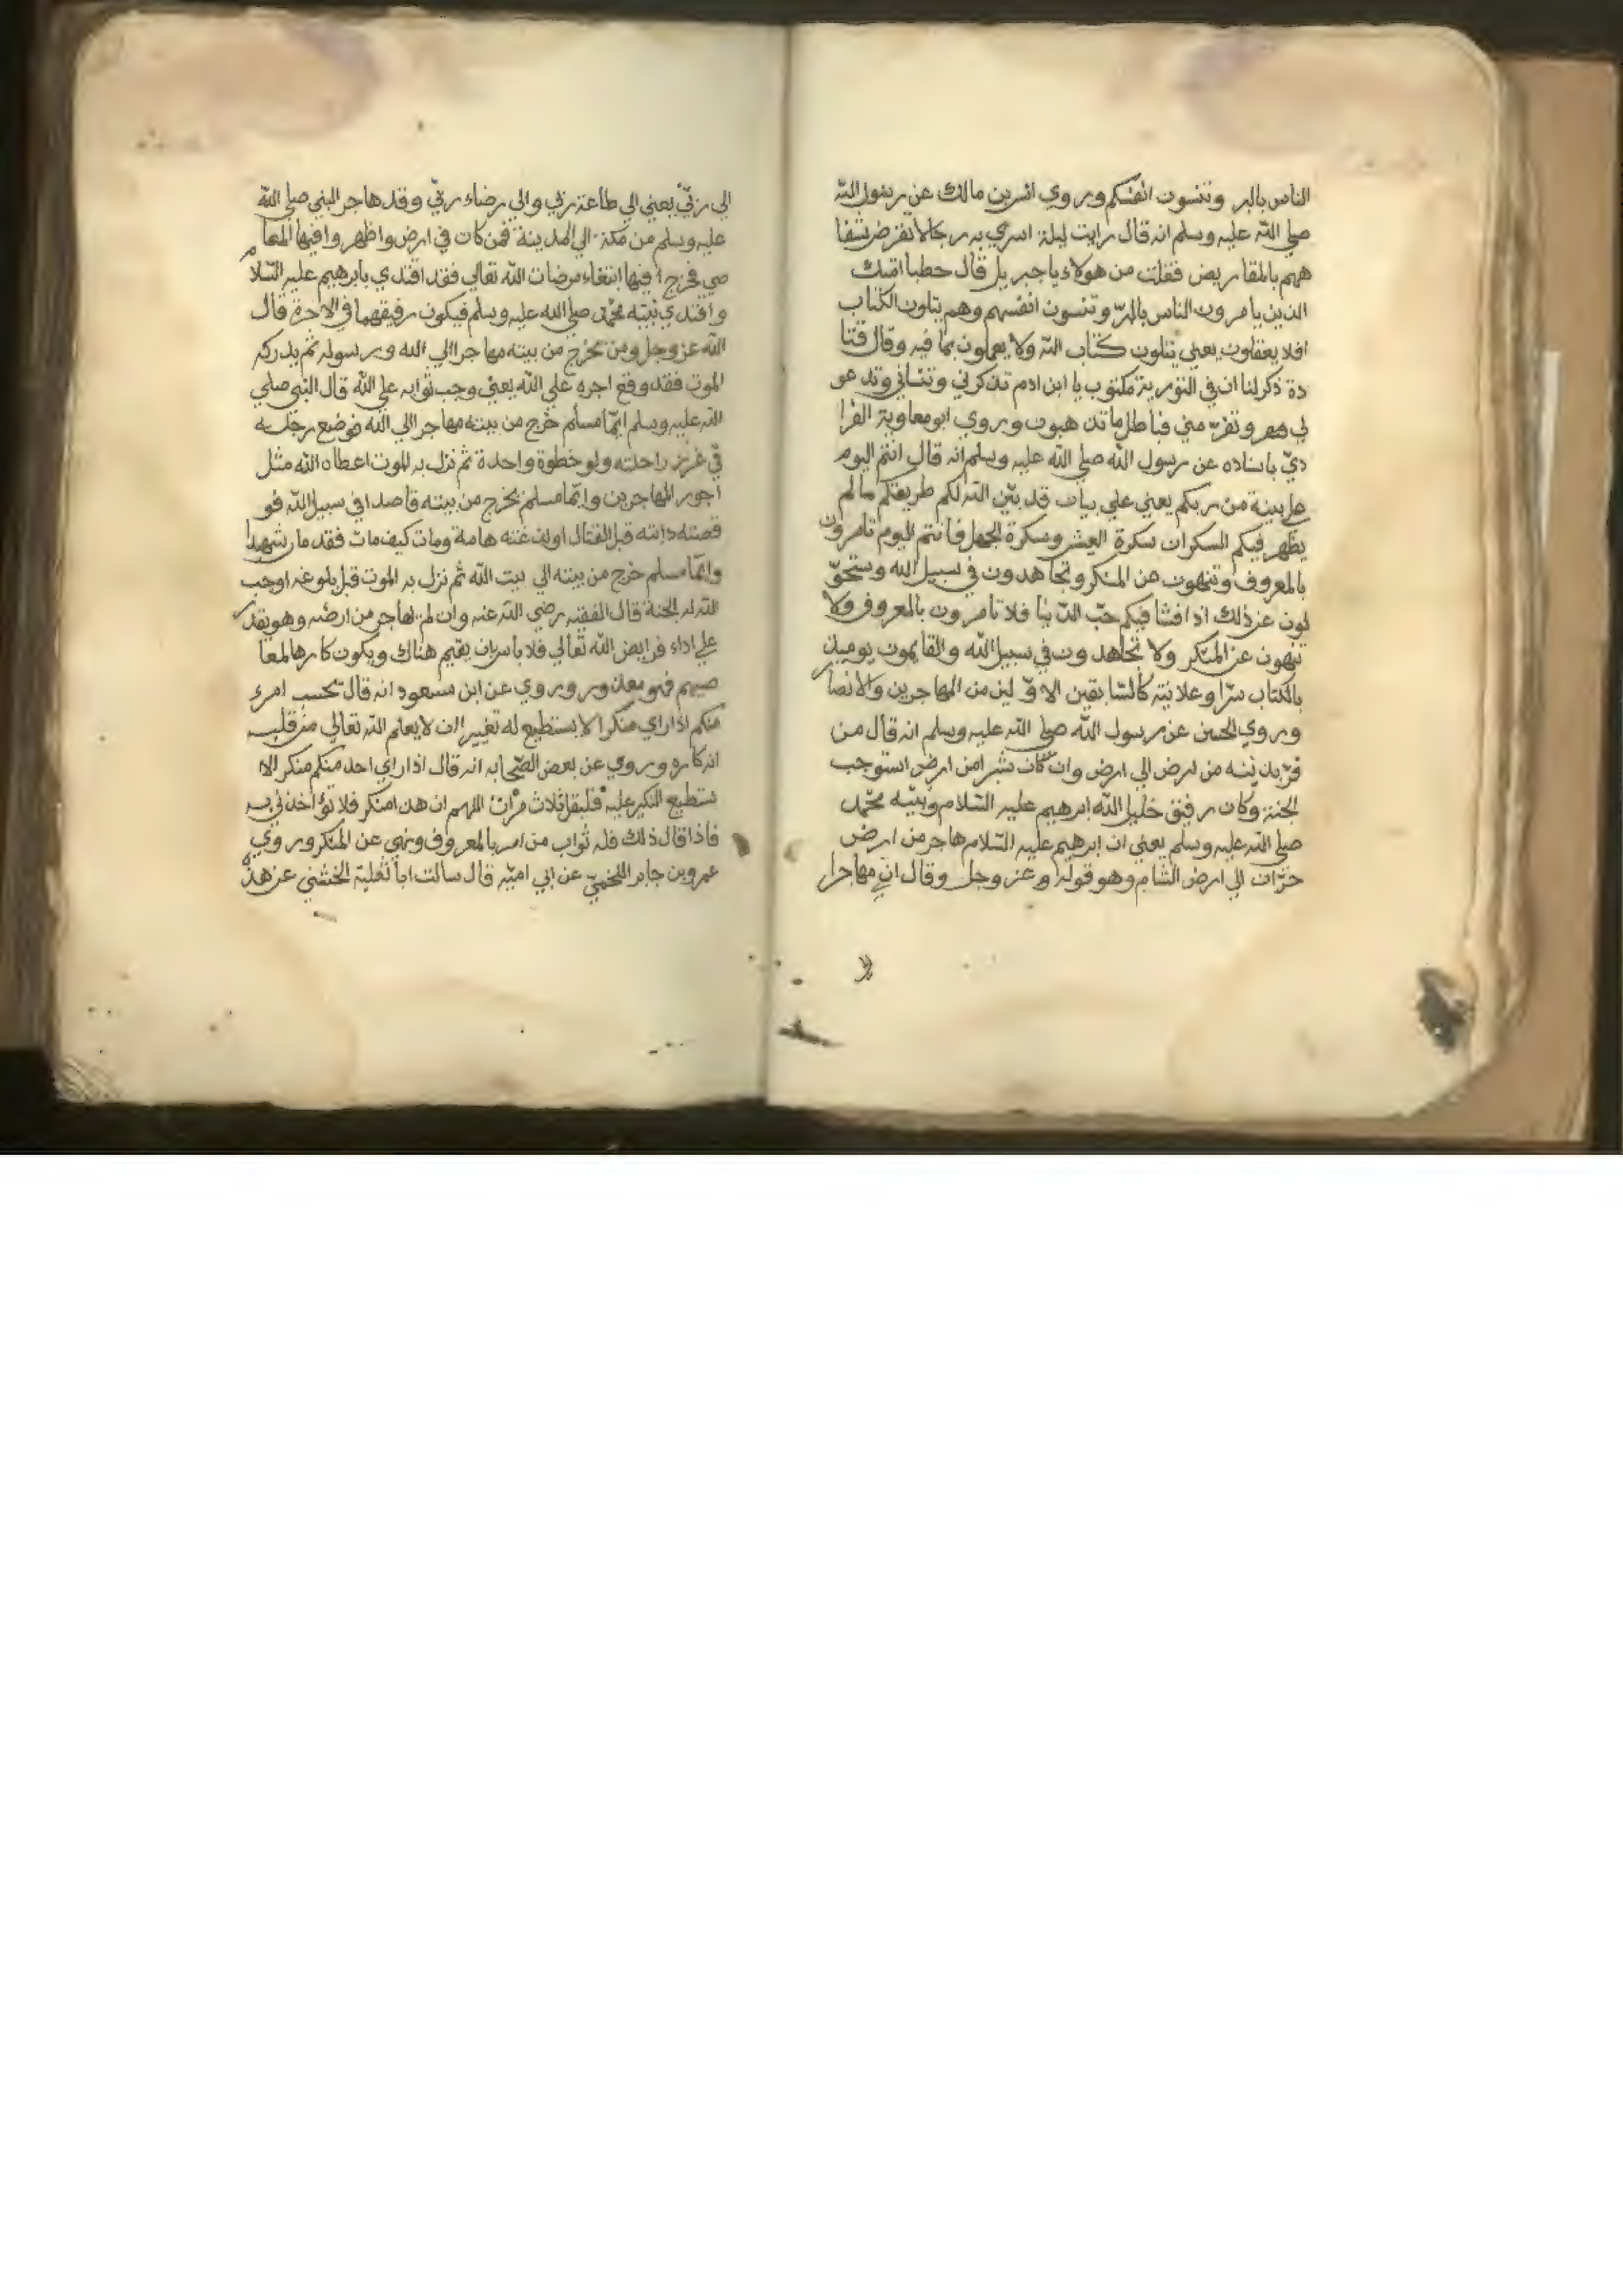 الناس بالبر وتنسون انفسكم وروي انس بن مالك عن رسول الله
صلي الله عليه وسلم انه قال رايت ليلة اسري به رجالا تقرض شفا
ههم بالمقاريض فقلت من هولاء يا جبريل قال خطبا امتك
الذين يامرون الناس بالبرّ وتنسون انفسهم وهم يتلون الكتاب
افلا يعقلون يعني يتلون كتاب الله ولا يعملون بما فيه وقال قتا
دة ذكر لنا ان في التورية مكتوب يا ابن ادم تذكرني وتنساني وتدعو
لي وتفرّ مني فباطل ما تذهبون وروي ابو معاوية الفزا
ديّ باسناده عن رسول الله صلي الله عليه وسلم انه قال انتم اليوم
علي بينة من ربكم يعني علي بيان قد بيّن الله لكم طريقكم ما لم
يظهر فيكم السكران سكرة العيش وسكرة الجهل فانتم اليوم تامرون
بالمعروف وتنهون عن المنكر وتجاهدون في سبيل الله وستحوّ
لون عن ذلك اذا فشا فيكم حبّ الدنيا فلا تامرون بالمعروف ولا
تنهون عن المنكر ولا تجاهدون في سبيل الله والقايمون يوميذ
بالكتاب سرّا وعلانية كالسّابقين الاوّلين من المهاجرين والانصار
وروي الحسن عن رسول الله صلي الله عليه وسلم انه قال من
فرّ بدينه من ارض الي ارض وان كان شبرا من ارض استوجب
الجنة وكان رفيق خليل الله ابرهيم عليه السّلام ونبيّه محمّد
صلي الله عليه وسلم يعني ان ابرهيم عليه السّلام هاجر من ارض
حرّان الي ارض الشام وهو قوله وعز وجل وقال اني مهاجرا
الي ربّي يعني الي طاعة ربّي والي رضاء ربّي وقد هاجر النبي صلي الله
عليه وسلم من مكة الي المدينة فمن كان في ارض واظهروا فيها المعا
صي فخرج فيها ابتغاء مرضات الله تعالي فقد اقتدي بابرهيم عليه السّلام
واقتدي نبيّه محمّد صلي الله عليه وسلم فيكون رفيقهما في الاخرة قال
الله عز وجل ومن يخرج من بيته مهاجرا الي الله ورسوله ثم يدركه
الموت فقد وقع اجره علي الله يعني وجب ثوابه علي الله قال النبي صلي
الله عليه وسلم ايّما مسلم خرج من بيته مهاجرا الي الله فوضع رجله
في غرز راحلته ولو خطوة واحدة ثم نزل به الموت اعطاه الله مثل
اجور المهاجرين وايّما مسلم يخرج من بيته قاصدا في سبيل الله فو
قصته دابته قبل القتال اولدغته هامة ومات كيف مات فقد مات شهيدا
وايّما مسلم خرج من بيته الي بيت الله ثم نزل به الموت قبل بلوغه اوجب
الله له الجنة قال الفقيه رضي الله عنه وان لم يهاجر من ارضه وهو يقدر
علي اداء فرايض الله تعالي فلا باس ان يقيم هناك ويكون كارها لمعا
صيهم فهو معذور وروي عن ابن مسعود انه قال بحسب امرء
منكم اذا راي منكرا لا يستطيع له تغييرا ان لا يعلم الله تعالي من قلبه
انه كاره وروي عن بعض الصّحابه انه قال اذا راي احد منكم منكرا لا
يستطيع النكير عليه فليقل ثلاث مرّات اللهم ان هذا منكر فلا تؤاخذني به
فاذا قال ذلك فله ثواب من امر بالمعروف ونهي عن المنكر وروي
عمرو بن جابر اللخميّ عن ابي اميّه قال سالت ابا ثعلبة الخشني عن هذه